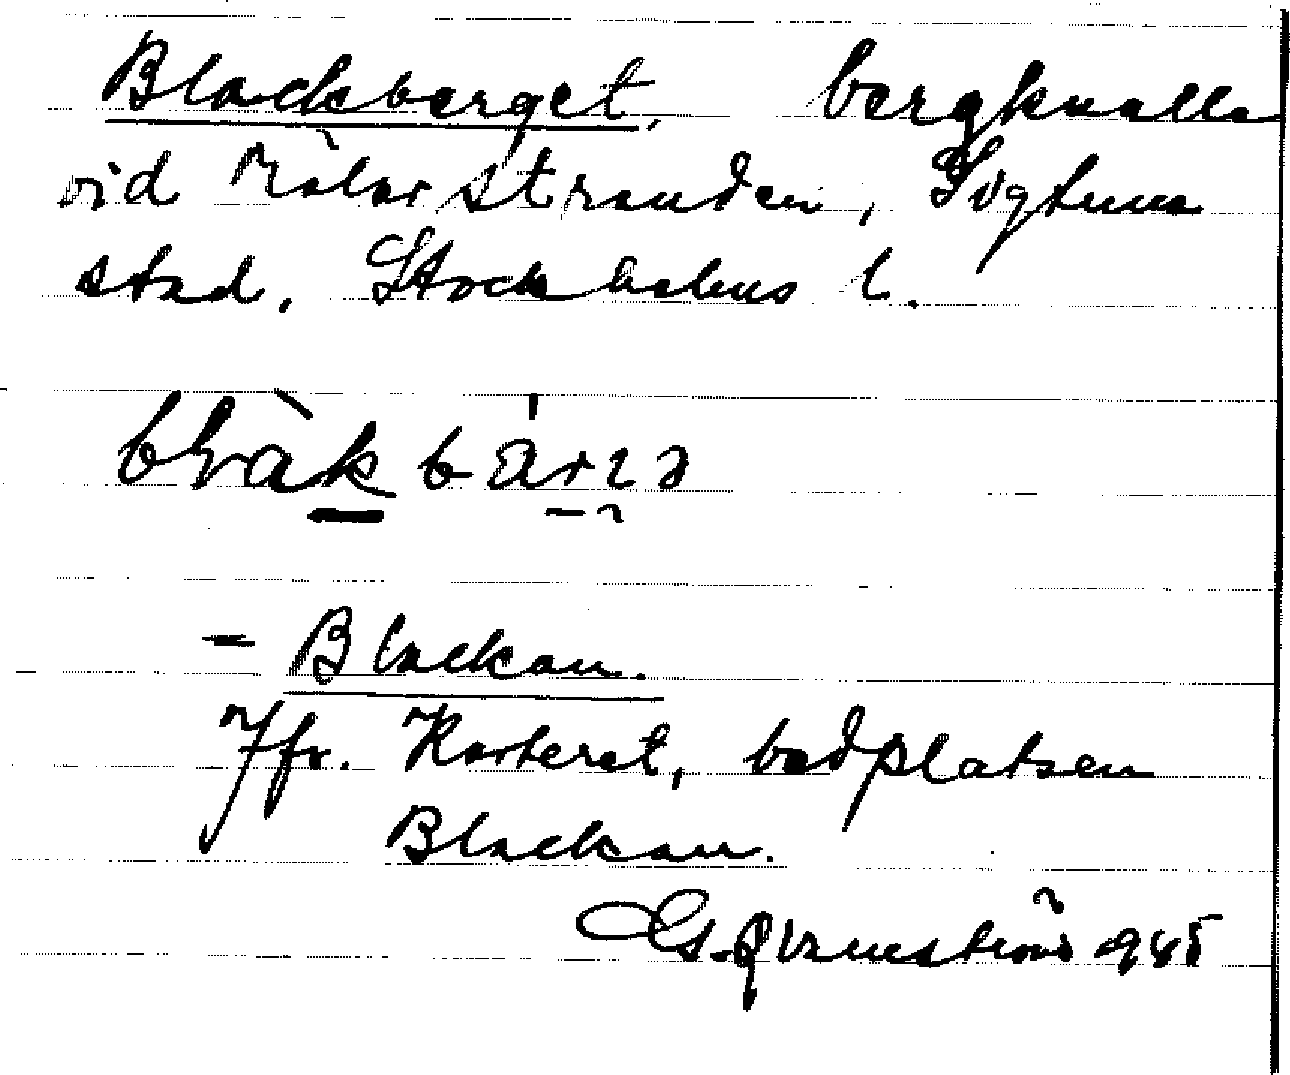 Blackberget, bergknalle
vid Mälarstranden, Sigtuna
stad. Stockholms l.
- Blackan.
Jfr. Karteret, badplatsen
Blackan.
G. Qvarnström 945